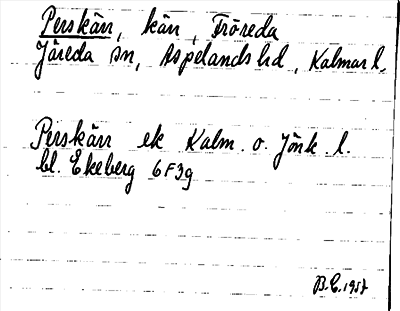 Perskärr, kärr, Fröreda
Järeda sn, Aspelands hd, Kalmar l.
Perskärr ek Kalm. o. Jönk. l.
bl. Ekeberg 6F3g
B.E. 1957